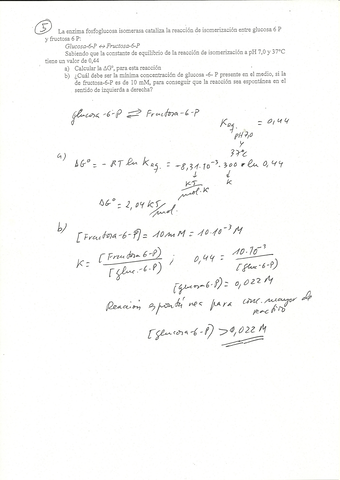 5
La enzima fosfoglucosa isomerasa cataliza la reacción de isomerización entre glucosa 6 P
y fructosa 6 P:
Glucosa-6-P ⇔ Fructosa-6-P
Sabiendo que la constante de equilibrio de la reacción de isomerización a pH 7,0 y 37°C
tiene un valor de 0,44
a) Calcular la ΔG°, para esta reacción
b) ¿Cuál debe ser la mínima concentración de glucosa -6- P presente en el medio, si la
de fructosa-6-P es de 10 mM, para conseguir que la reacción sea espontánea en el
sentido de izquierda a derecha?
glucosa-6-P ⇌ Fructosa-6-P
Keq. = 0,44
pH 7,0
y
37°C
a) ΔG° = - RT ln Keq. = -8,31·10⁻³ · 300 · ln 0,44
↓ ↓
KJ/mol.K K
ΔG° = 2,04 KJ/mol.
b)
[Fructosa-6-P] = 10 mM = 10·10⁻³ M
K = [Fructosa 6-P]/[gluc.-6-P] ; 0,44 = 10·10⁻³/[gluc-6-P]
[glucosa-6-P] = 0,022 M
Reacción espontánea para conc. mayor de
reactivo
[glucosa-6-P] > 0,022 M